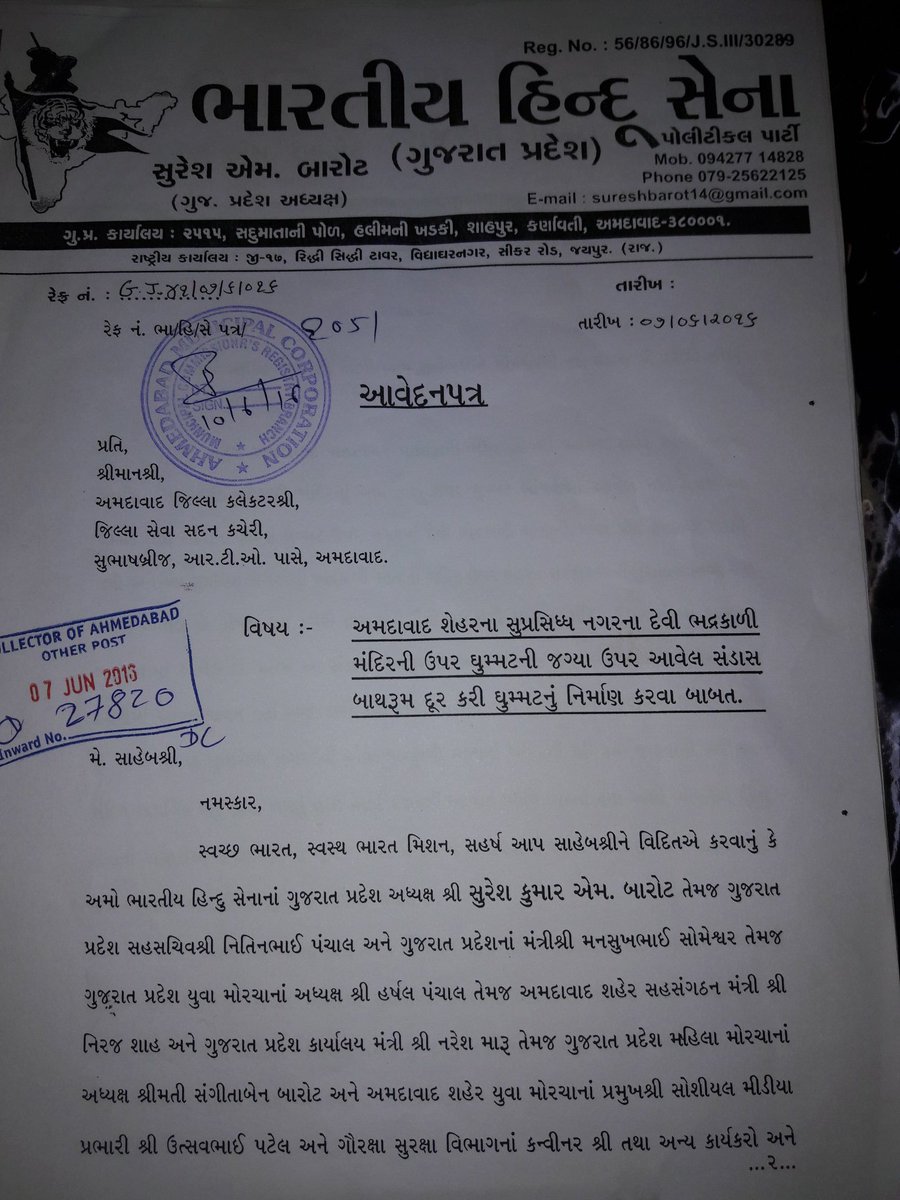 Reg. No. : 56/86/96/J.S.III/30289
ભારતીય હિન્દૂ સેના
પોલીટીકલ પાર્ટી
સુરેશ એમ. બારોટ (ગુજરાત પ્રદેશ)
Mob. 094277 14828
Phone 079-25622125
(ગુજ. પ્રદેશ અધ્યક્ષ)
E-mail : sureshbarot14@gmail.com
ગુ.પ્ર. કાર્યાલય : ૨૫૧૫, સદુમાતાની પોળ, હલીમની ખડકી, શાહપુર, કર્ણાવતી, અમદાવાદ-૩૮૦૦૦૧.
રાષ્ટ્રીય કાર્યાલય : જી-૧૭, રિદ્ધી સિદ્ધી ટાવર, વિદ્યાધરનગર, સીકર રોડ, જયપુર. (રાજ.)
રેફ નં. :
તારીખ :
રેફ નં. ભા/હિ/સે પત્ર/ ૨૦૫/
તારીખ : ૦૭/૦૬/૨૦૧૬
AHMEDABAD MUNICIPAL CORPORATION
MUNICIPAL COMMISSIONR'S REGISTRY BRANCH
SIGN.
10/6/16
આવેદનપત્ર
પ્રતિ,
શ્રીમાનશ્રી,
અમદાવાદ જિલ્લા કલેકટરશ્રી,
જિલ્લા સેવા સદન કચેરી,
સુભાષબ્રીજ, આર.ટી.ઓ. પાસે, અમદાવાદ.
OLLECTOR OF AHMEDABAD
OTHER POST
07 JUN 2016
27820
Inward No.
DC
વિષય :- અમદાવાદ શહેરના સુપ્રસિધ્ધ નગરના દેવી ભદ્રકાળી
મંદિરની ઉપર ઘુમ્મટની જગ્યા ઉપર આવેલ સંડાસ
બાથરૂમ દૂર કરી ઘુમ્મટનું નિર્માણ કરવા બાબત.
મે. સાહેબશ્રી,
નમસ્કાર,
સ્વચ્છ ભારત, સ્વસ્થ ભારત મિશન, સહર્ષ આપ સાહેબશ્રીને વિદિતએ કરવાનું કે
અમો ભારતીય હિન્દુ સેનાનાં ગુજરાત પ્રદેશ અધ્યક્ષ શ્રી સુરેશ કુમાર એમ. બારોટ તેમજ ગુજરાત
પ્રદેશ સહસચિવશ્રી નિતિનભાઈ પંચાલ અને ગુજરાત પ્રદેશનાં મંત્રીશ્રી મનસુખભાઈ સોમેશ્વર તેમજ
ગુજરાત પ્રદેશ યુવા મોરચાનાં અધ્યક્ષ શ્રી હર્ષલ પંચાલ તેમજ અમદાવાદ શહેર સહસંગઠન મંત્રી શ્રી
નિરજ શાહ અને ગુજરાત પ્રદેશ કાર્યાલય મંત્રી શ્રી નરેશ મારૂ તેમજ ગુજરાત પ્રદેશ મહિલા મોરચાનાં
અધ્યક્ષ શ્રીમતી સંગીતાબેન બારોટ અને અમદાવાદ શહેર યુવા મોરચાનાં પ્રમુખશ્રી સોશીયલ મીડીયા
પ્રભારી શ્રી ઉત્સવભાઈ પટેલ અને ગૌરક્ષા સુરક્ષા વિભાગનાં કન્વીનર શ્રી તથા અન્ય કાર્યકરો અને
...૨...